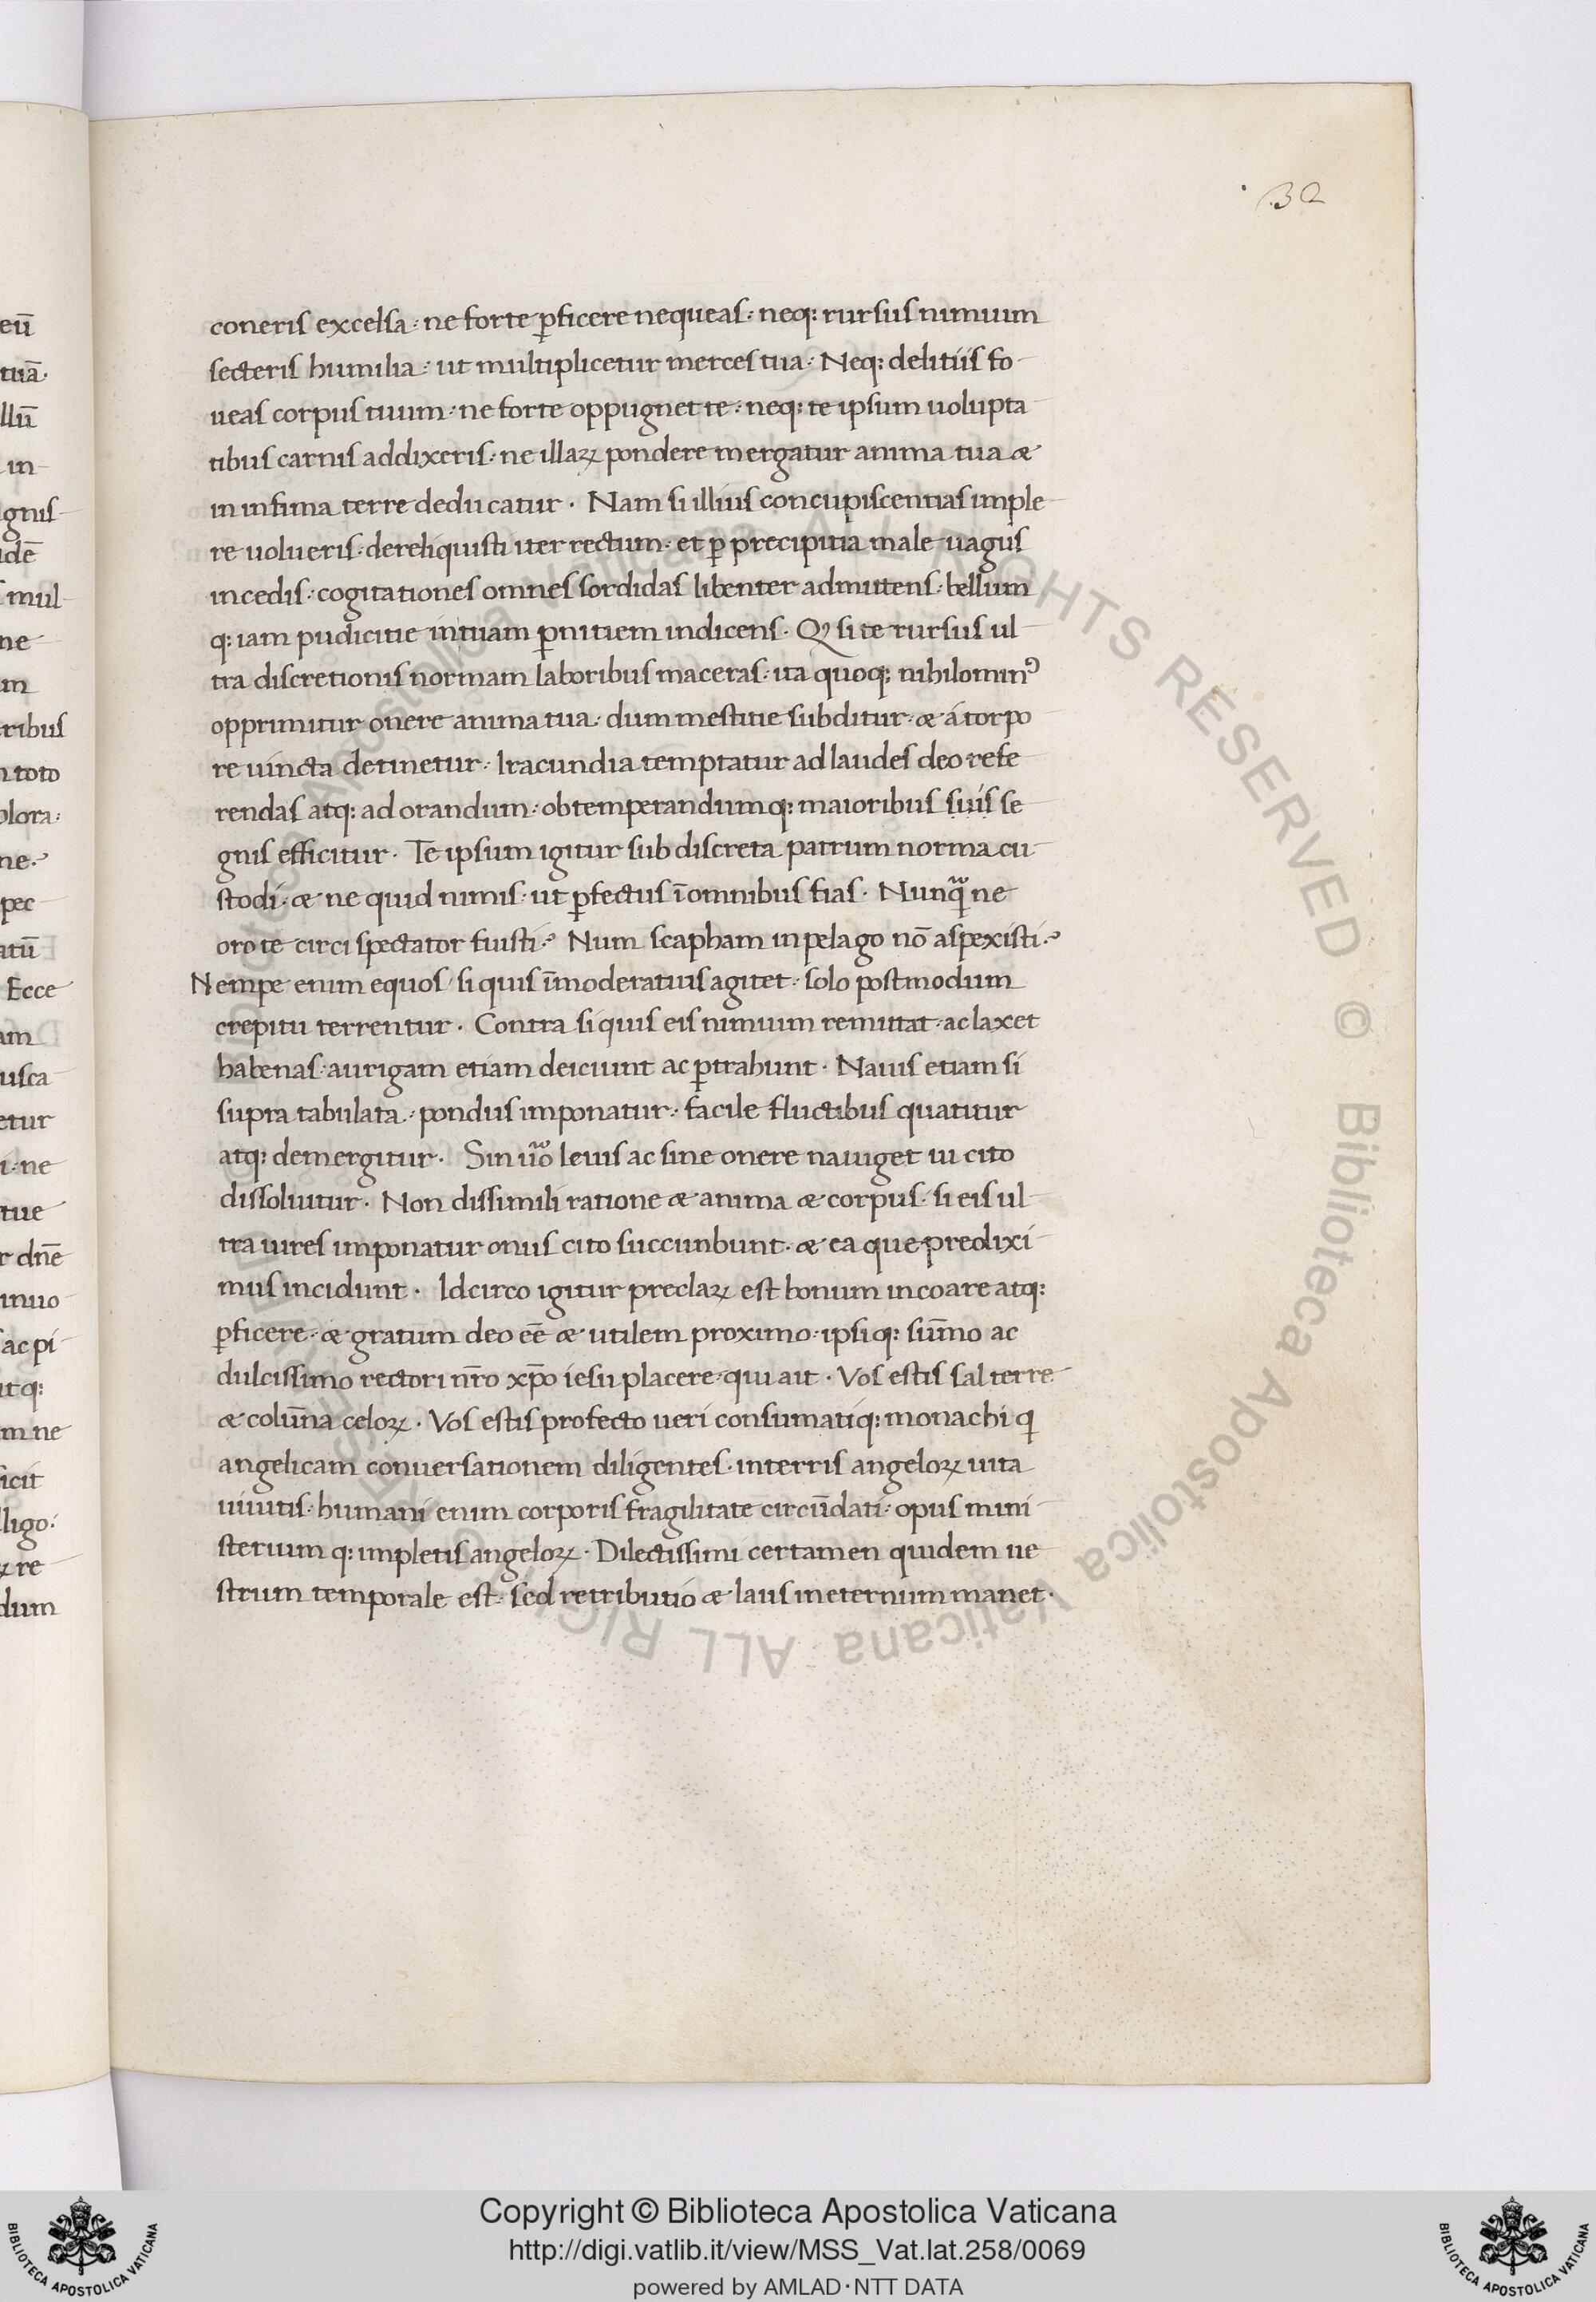 32
coneris excelsa: ne forte ꝑficere nequeas: neq; rursus nimium
secteris humilia: ut multiplicetur merces tua: Neq; delitiis fo-
ueas corpus tuum: ne forte oppugnet te: neq; te ipsum uolupta-
tibus carnis addixeris: ne illaꝝ pondere mergatur anima tua &
in infima terre deducatur · Nam si illius concupiscentias imple-
re uolueris · dereliquisti iter rectum · et ꝑ precipitia male uagus
incedis: cogitationes omnes sordidas libenter admittens: bellum
q; iam pudicitie intuam ꝑnitiem indicens · Qꝫ si te rursus ul-
tra discretionis normam laboribus maceras: ita quoq; nihilominꝰ
opprimitur onere anima tua: dum mestitie subditur: & á torpo
re uincta detinetur: Iracundia temptatur ad laudes deo refe
rendas atq; ad orandum: obtemperandumq; maioribus suis se
gnis efficitur · Te ipsum igitur sub discreta patrum norma cu-
stodi: & ne quid nimis: ut ꝑfectus ī omnibus fias · Nunq̄ ne
oro te circi spectator fuisti? Num scapham in pelago nō aspexisti?
Nempe enim equos si quis īmoderatius agitet: solo postmodum
crepitu terrentur · Contra si quis eis nimium remittat: ac laxet
habenas: aurigam etiam deiciunt ac ꝑtrahunt · Nauis etiam si
supra tabulata: pondus imponatur: facile fluctibus quatitur
atq; demergitur · Sin ůo leuis ac sine onere nauiget ui cito
dissoluitur · Non dissimili ratione & anima & corpus · si eis ul-
tra uires imponatur onus cito succunbunt · & ea que predixi-
mus incidunt · Idcirco igitur preclaꝝ est bonum incoare atq;
ꝑficere: & gratum deo eē & utilem proximo: ipsiq; sūmo ac
dulcissimo rectori nr̄o xp̄o iesu placere qui ait · Vos estis sal terre
& colūna celoꝝ · Vos estis profecto ueri consumatiq; monachi q
angelicam conuersationem diligentes · in terris angeloꝝ uita
uiuitis: humani enim corporis fragilitate circūdati: opus mini-
sterium q; impletis angeloꝝ · Dilectissimi certamen quidem ue-
strum temporale est: sed retributio & laus in eternum manet ·
eū
tuā·
llū
in-
gnis-
dē
mul-
ne
m
ribus
toto
lora:
ne·
pec
atū
Ecce
am
usca
etur
i: ne
tue
r dn̄e
inuo
ac pi-
tq;
m ne
icit
ligo:
ꝝ re
dum
Biblioteca Apostolica Vaticana ALL RIGHTS RESERVED © Biblioteca Apostolica Vaticana ALL RIGHTS RESERVED ©
Copyright © Biblioteca Apostolica Vaticana
http://digi.vatlib.it/view/MSS_Vat.lat.258/0069
powered by AMLAD·NTT DATA
BIBLIOTECA APOSTOLICA VATICANA
BIBLIOTECA APOSTOLICA VATICANA